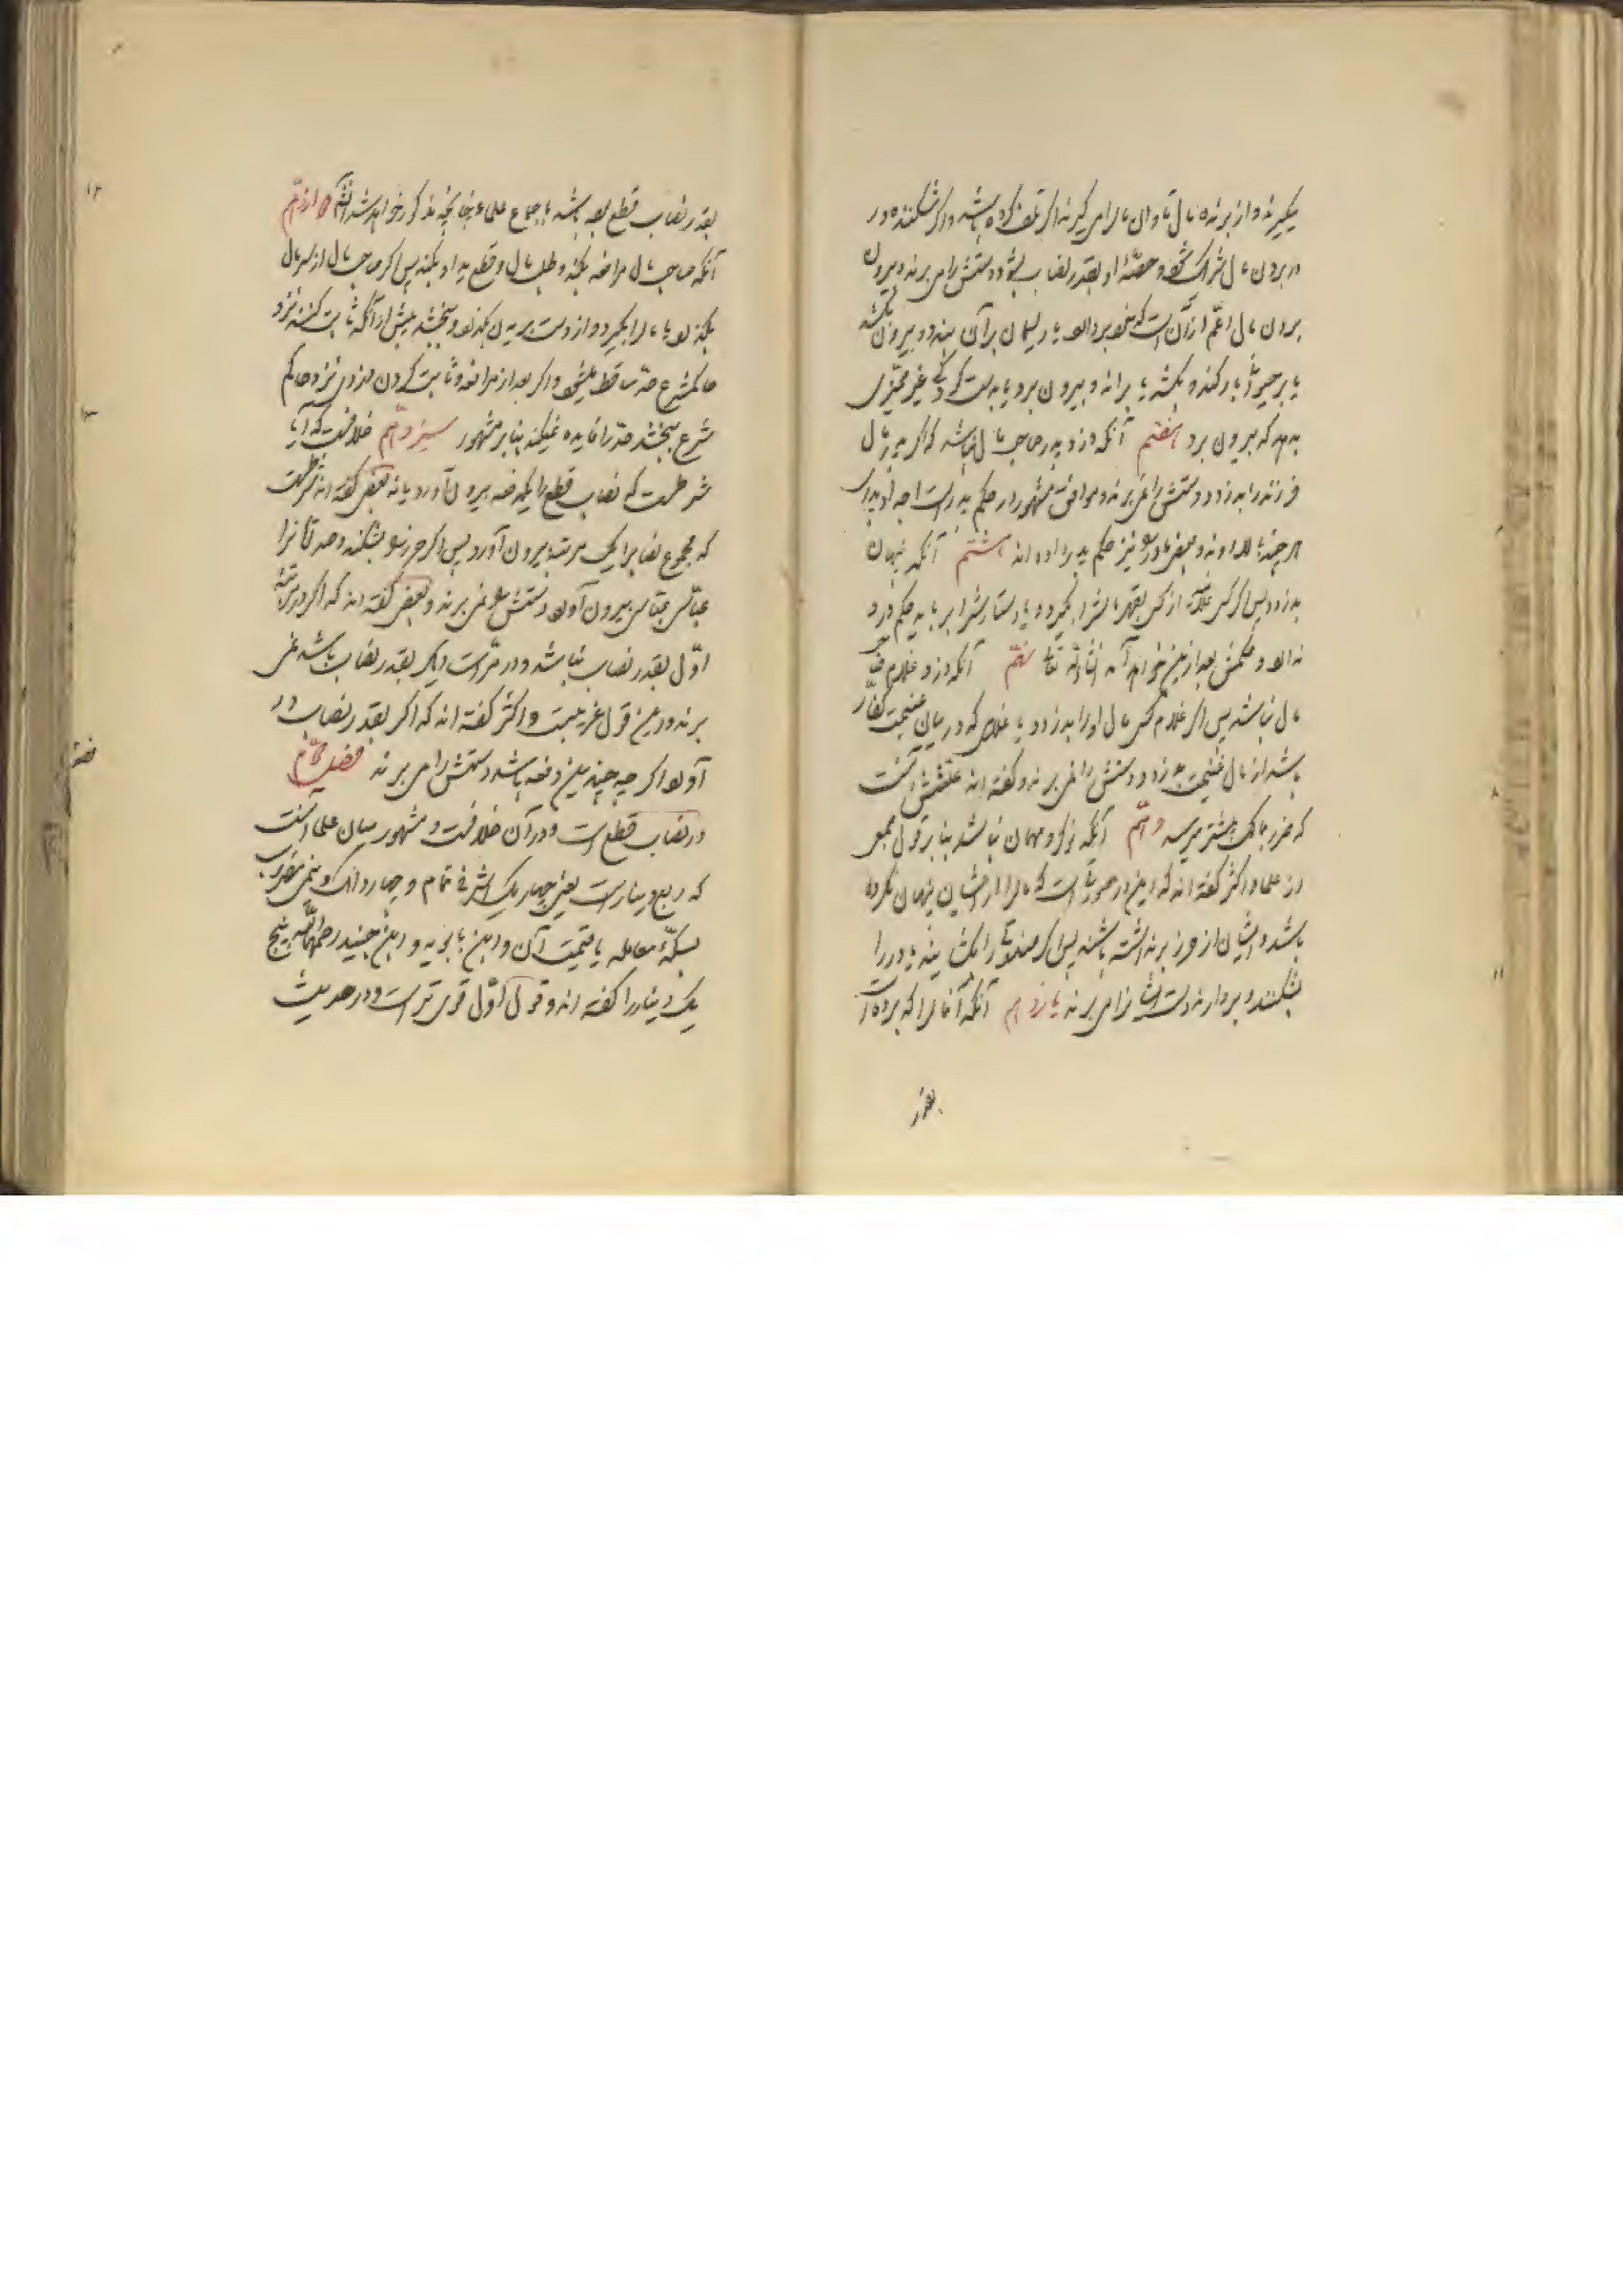 میگیرند و از برنده مال تاوان مال را می گیرند اگر تلف کرده باشد و اگر شکننده در
در بردن مال شراکت شود و حصّهٔ او بقدر نصاب بشود دستش را می برند و بیرون
بردن مال اعمّ از آن است که خود بردارد یا ریسمان بر آن بندد و بیرون بکشد
یا بر حیوانی بار کند و بکشد یا براند و بیرون برد یا بدست کودکی غیر ممیّزی
بدهد که بیرون برد هفتم آنکه دزد پدر صاحب مال نباشد که اگر پدر مال
فرزند را بدزدد دستش را نمی برند و موافق مشهور در حکم پدر است اجداد پدری
هر چند بالا روند و بعضی مادر را نیز حکم پدر داده اند هشتم آنکه پنهان
بدزدد پس اگر کسی علانیه از کسی بقهر مالش را بگیرد و یا دستارش را برباید حکم دزد
ندارد و حکمش بعد از این خواهد آمد انشاء الله تعالی نهم آنکه دزد غلام صاحب
مال نباشد پس اگر غلام کسی مال او را بدزدد یا غلامی که در میان غنیمت کفّار
باشد از مال غنیمت بدزدد دستش را نمی برند و گفته اند علتش آنست
که ضرر مالک بیشتر میرسد دهم آنکه نوکر و مهمان نباشد بنا بر قول جمعی
از علما و اکثر گفته اند که این در صورتی است که مال را از ایشان پنهان نکرده
باشد و ایشان از حرز برنداشته باشند پس اگر صندوقی را بگشایند یا در را
بشکنند و بردارند دست ایشانرا می برند یازدهم آنکه آنمال را که برده است
بقدر
بقدر نصاب قطع بوده باشد باجماع علماء چنانچه مذکور خواهد شد انشاء الله دوازدهم
آنکه صاحب مال مرافعه بکند و طلب مال و قطع ید او بکند پس اگر صاحب مال از سر مال
بگذرد یا مال را بگیرد و از دست بریدن بگذرد و ببخشد پیش از آنکه ثابت کنند نزد
حاکم شرع حدّ ساقط میشود و اگر بعد از مرافعه و ثابت کردن دزدی نزد حاکم
شرع ببخشد حدّ را فایده نمیکند بنا بر مشهور سیزدهم خلافست که آیا
شرطست که نصاب قطع را یکدفعه بیرون آورد یا نه بعضی گفته اند شرطست
که مجموع نصاب را یک مرتبه بیرون آورد پس اگر حرز را بشکند و صد قازرا
عبّاسی عبّاسی بیرون آورد دستش را نمی برند و بعضی گفته اند که اگر در مرتبهٔ
اوّل بقدر نصاب نباشد و در مرّات دیگر بقدر نصاب باشد نمی
برند و این قول غریبست و اکثر گفته اند که اگر بقدر نصاب در
آورد اگر چه چندین دفعه باشد دستش را می برند فصل پنجم
در نصاب قطع است و در آن خلافست و مشهور میان علما آنست
که ربع دینار است یعنی چهار یک اشرفی تمام و چهار دانگ و نیمی مضروب
بسکّهٔ معامله یا قیمت آن و ابن بابویه و ابن جنید رحمهما الله پنج
یک دینار را گفته اند و قول اوّل قوی تر است و در حدیث